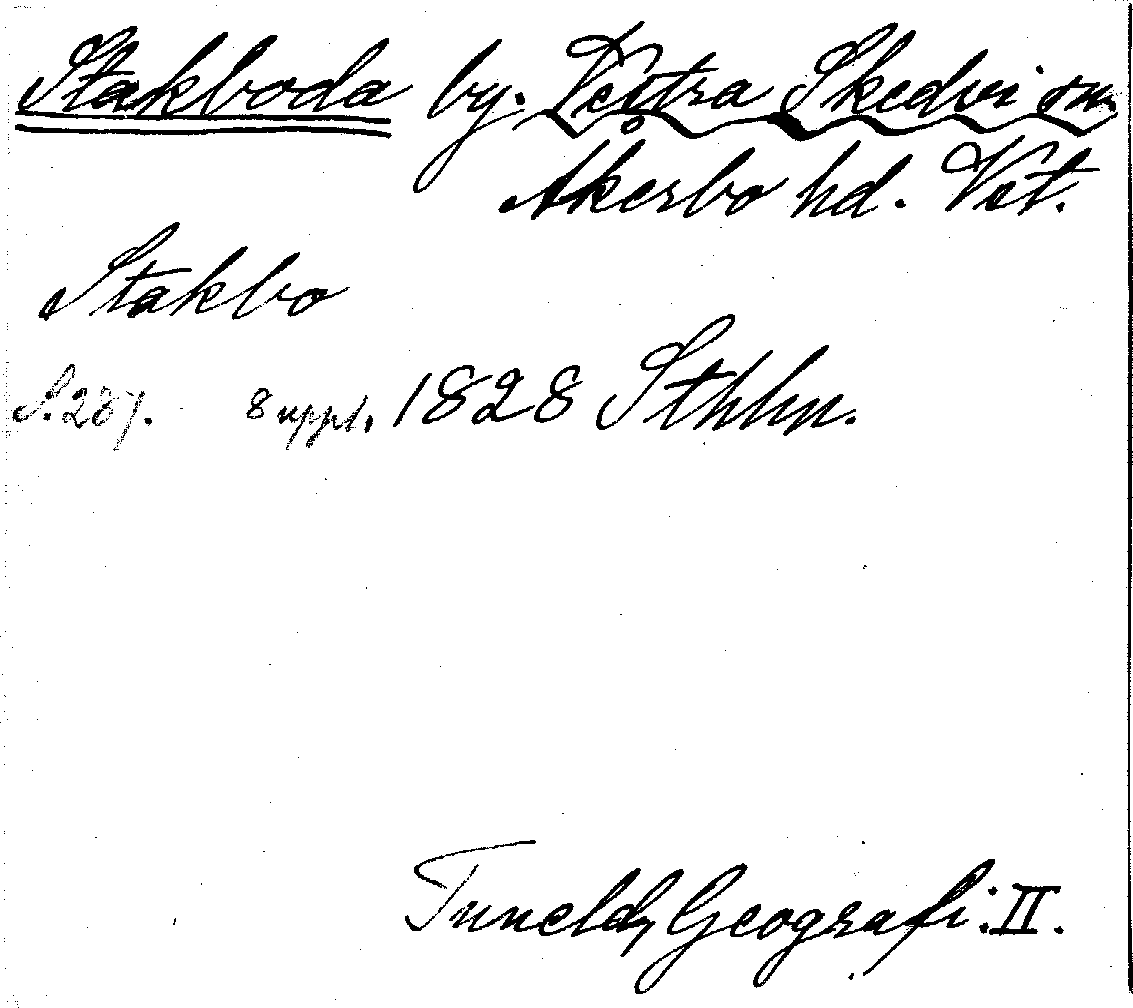 Stakboda by. Vestra Skedvi sn.
Åkerbo hd. Vst.
Stakbo
S. 287. 8 uppl. 1828 Sthlm.
Tunelds Geografi. II.